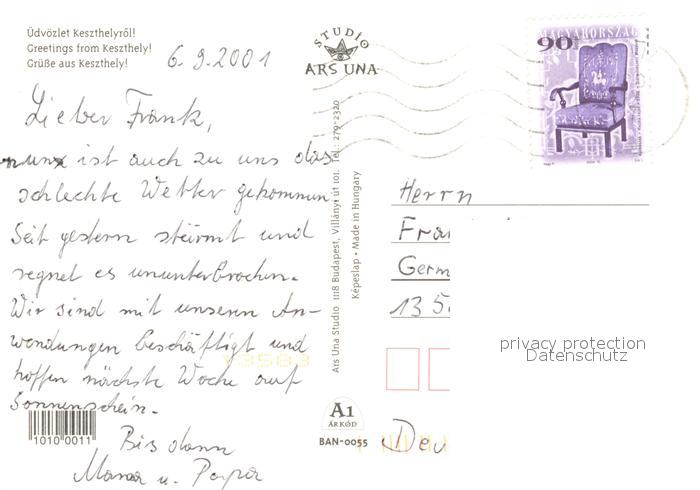 Üdvözlet Keszthelyről!
Greetings from Keszthely!
Grüße aus Keszthely!
6.9.2001
STUDIO
ARS UNA
90 MAGYARORSZÁG
Lieber Frank,
nun ist auch zu uns das
schlechte Wetter gekommen.
Seit gestern stürmt und
regnet es ununterbrochen.
Wir sind mit unseren An-
wendungen beschäftigt und
hoffen nächste Woche auf
Sonnenschein.
Bis dann
Mama u. Papa
1010 0011
Ars Una Studio 1118 Budapest, Villányi út 101. Tel.: 279-2320
Képeslap • Made in Hungary
A1
ÁRKÓD
BAN-0055
Herrn
Fra
Germ
135
Deu
privacy protection
Datenschutz